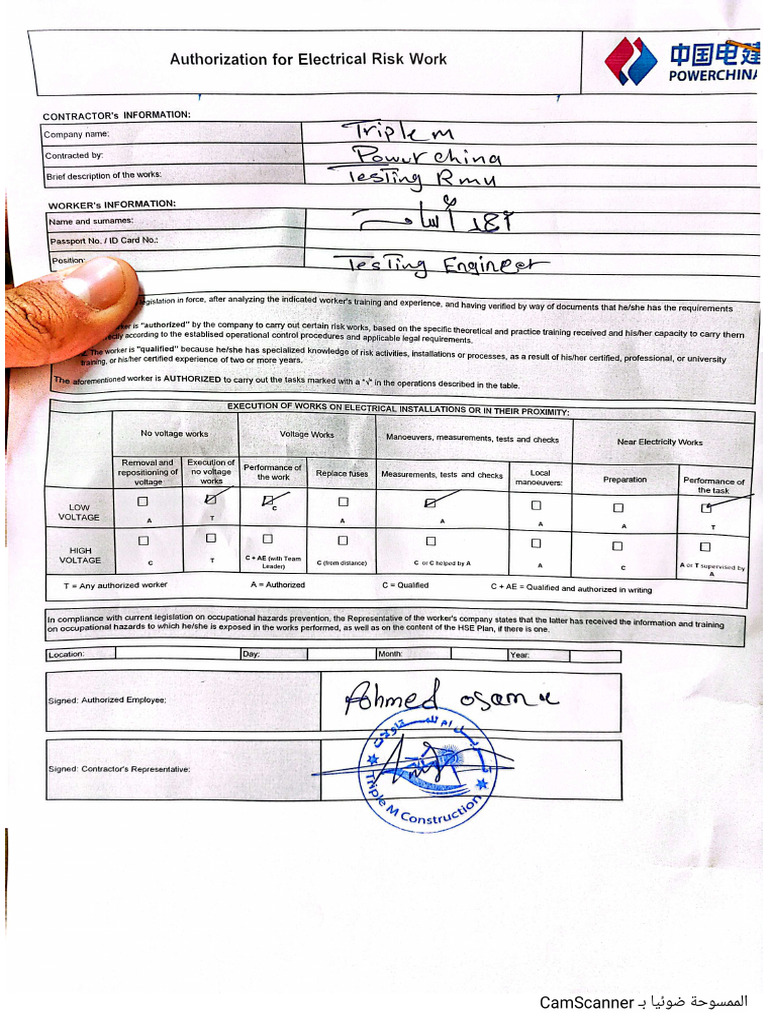 Authorization for Electrical Risk Work
中国电建
POWERCHINA
CONTRACTOR's INFORMATION:
Company name: Triple m
Contracted by: Power china
Brief description of the works: Testing Rmu
WORKER's INFORMATION:
Name and surnames: أحمد أسامه
Passport No. / ID Card No.:
Position: Testing Engineer
legislation in force, after analyzing the indicated worker's training and experience, and having verified by way of documents that he/she has the requirements
is "authorized" by the company to carry out certain risk works, based on the specific theoretical and practice training received and his/her capacity to carry them
according to the established operational control procedures and applicable legal requirements.
The worker is "qualified" because he/she has specialized knowledge of risk activities, installations or processes, as a result of his/her certified, professional, or university
training, or his/her certified experience of two or more years.
The aforementioned worker is AUTHORIZED to carry out the tasks marked with a "√" in the operations described in the table.
EXECUTION OF WORKS ON ELECTRICAL INSTALLATIONS OR IN THEIR PROXIMITY:
No voltage works Voltage Works Manoeuvers, measurements, tests and checks Near Electricity Works
Removal and repositioning of voltage Execution of no voltage works Performance of the work Replace fuses Measurements, tests and checks Local manoeuvers: Preparation Performance of the task
LOW VOLTAGE A T C A A A A T
HIGH VOLTAGE C T C + AE (with Team Leader) C (from distance) C or C helped by A A C A or T supervised by A
T = Any authorized worker A = Authorized C = Qualified C + AE = Qualified and authorized in writing
In compliance with current legislation on occupational hazards prevention, the Representative of the worker's company states that the latter has received the information and training
on occupational hazards to which he/she is exposed in the works performed, as well as on the content of the HSE Plan, if there is one.
Location: Day: Month: Year:
Signed: Authorized Employee: Ahmed osama
Signed: Contractor's Representative:
تريبل ام للمقاولات
Triple M Construction
الممسوحة ضوئيا بـ CamScanner